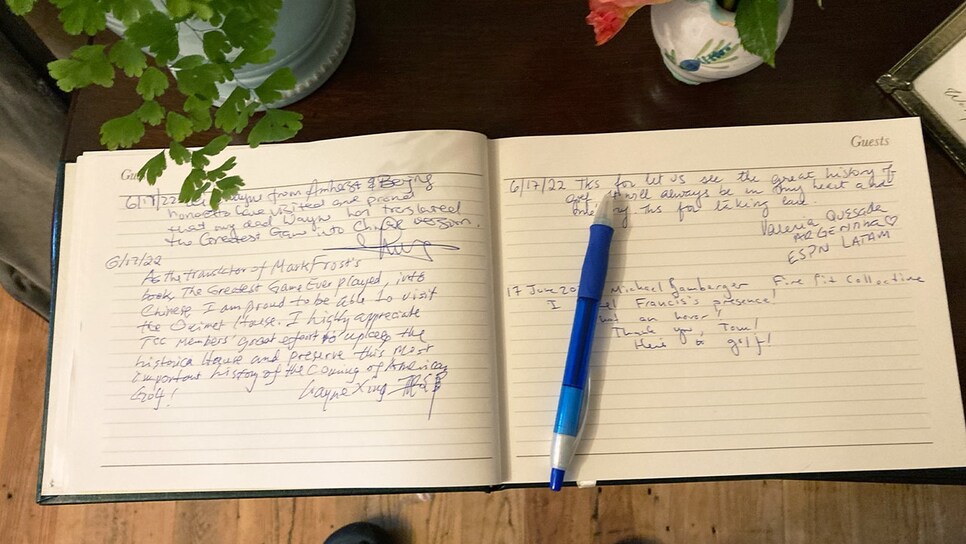 Guests
6/17/22
from Amherst & Beijing
honored to have visited and proud
that my dear Wayne has translated
the Greatest Game into Chinese version.
6/17/22
As the translator of Mark Frost's
book The Greatest Game Ever played, into
Chinese, I am proud to be able to visit
the Ouimet House. I highly appreciate
TCC Members' great effort to upkeep the
historica House and preserve this most
important history of the Coming of American
Golf!
Wayne Xing
Guests
6/17/22 Tks for let us see the great history of
golf. It will always be in my heart and
Tks for taking care.
Valeria Quesada
ARGENTINA ♡
ESPN LATAM
17 June Michael Bamberger Fire Pit Collective
I Francis's presence!
an honor!
Thank you, Tom!
Here's to golf!